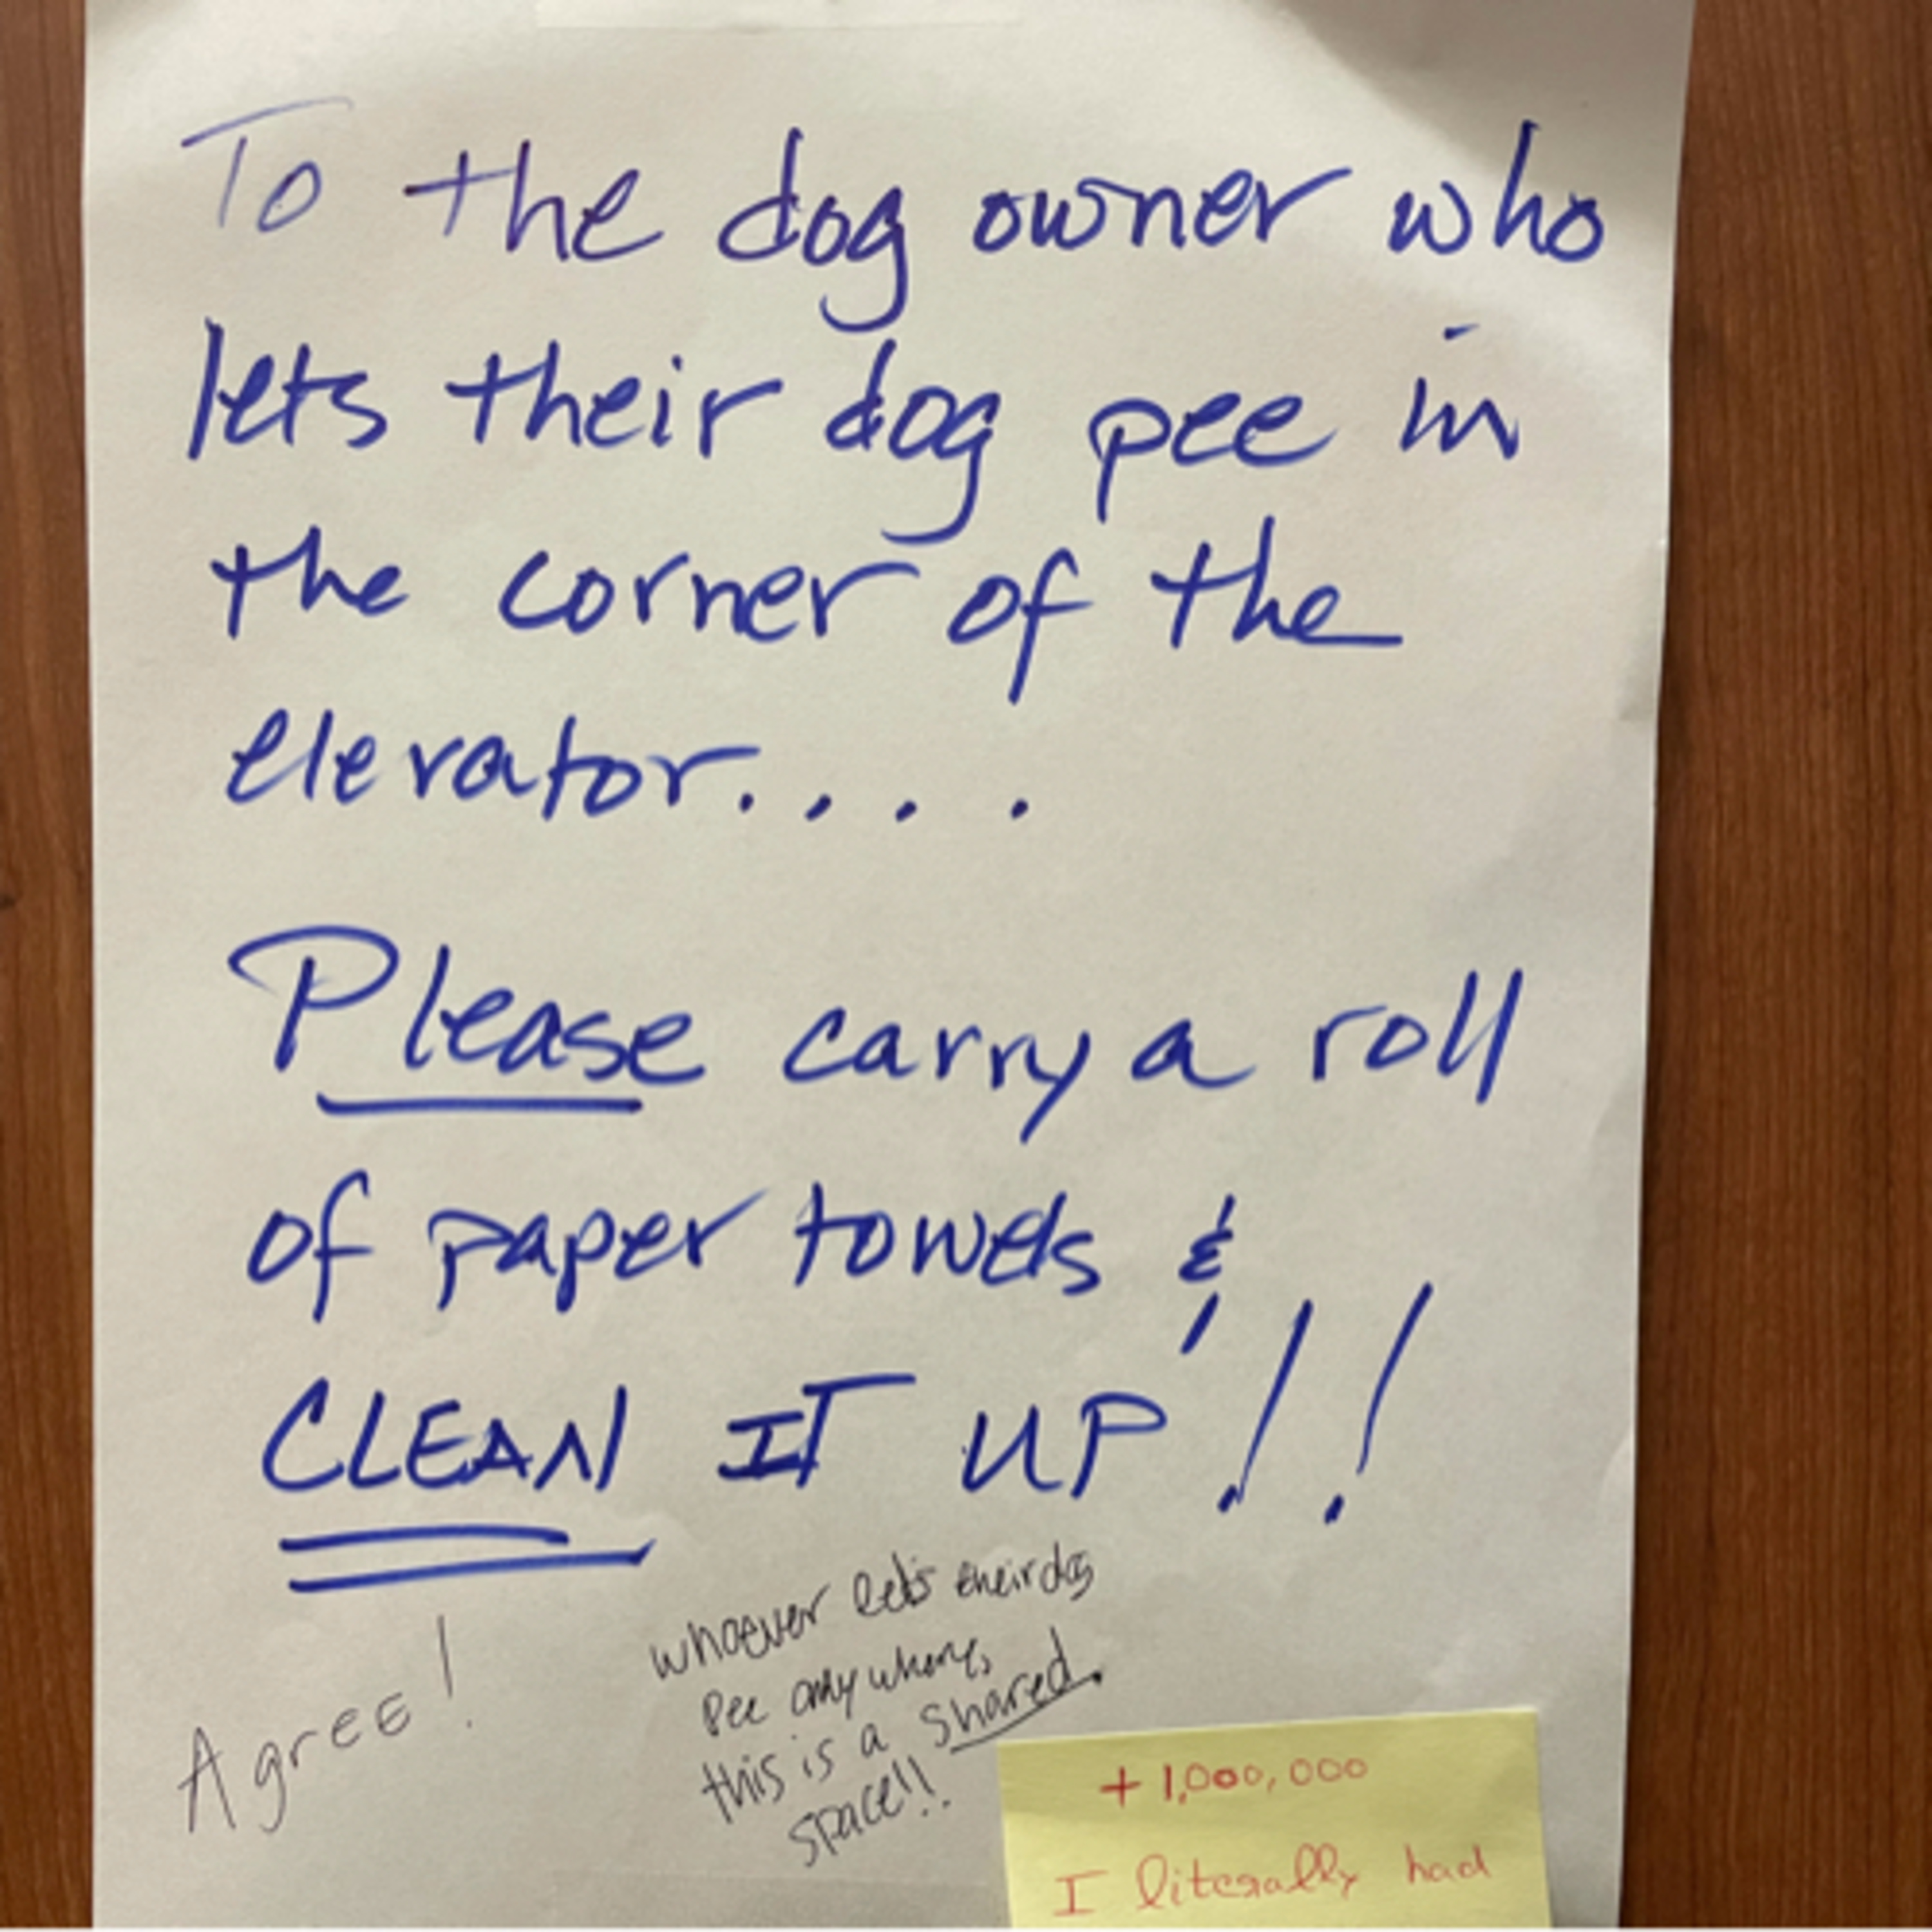 To the dog owner who
lets their dog pee in
the corner of the
elevator....
Please carry a roll
of paper towels &
CLEAN IT UP!!
Agree!
whoever lets their dog
pee anywhere,
this is a shared
space!!
+ 1,000,000
I literally had